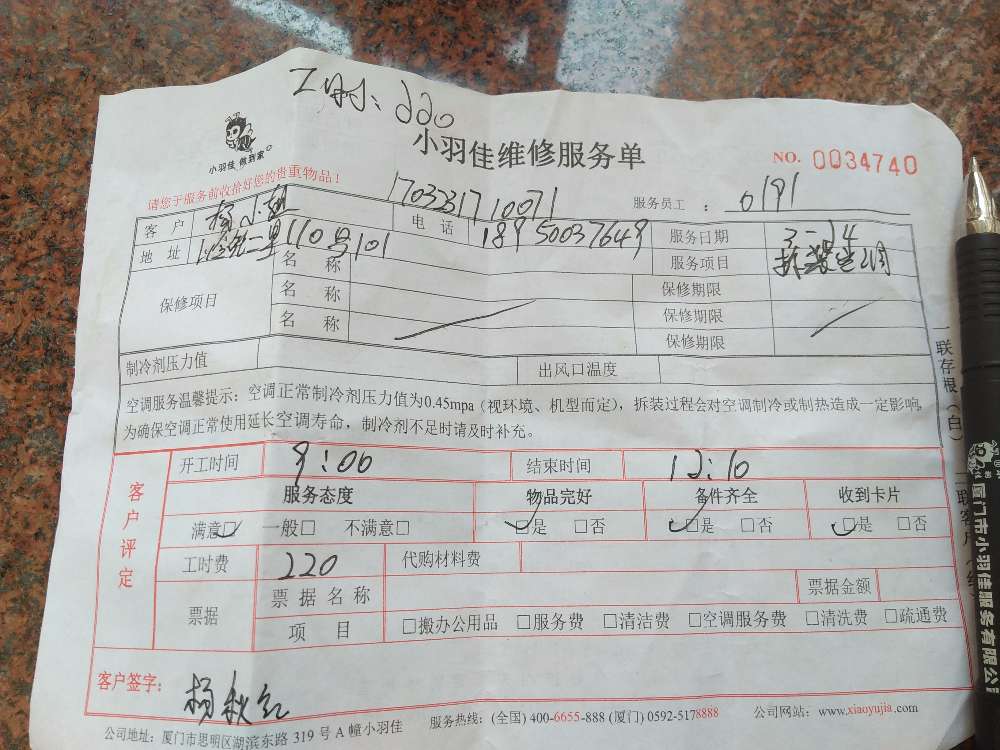 工时: 220
小羽佳 做到家
小羽佳维修服务单
NO. 0034740
请您于服务前收拾好您的贵重物品!
1703231710071
服务员工 : 0191
客户 杨小姐 电话 18950037649 服务日期 3-24
地址 二里110号101 服务项目 拆装空调
保修项目 名称 保修期限
名称 保修期限
名称 保修期限
制冷剂压力值 出风口温度
空调服务温馨提示:空调正常制冷剂压力值为0.45mpa(视环境、机型而定),拆装过程会对空调制冷或制热造成一定影响,
为确保空调正常使用延长空调寿命,制冷剂不足时请及时补充。
客户评定 开工时间 9:00 结束时间 12:10
服务态度 物品完好 备件齐全 收到卡片
满意□ 一般□ 不满意□ □是 □否 □是 □否 □是 □否
工时费 220 代购材料费
票据 票据名称 票据金额
项目 □搬办公用品 □服务费 □清洁费 □空调服务费 □清洗费 □疏通费
客户签字: 杨秋红
公司地址:厦门市思明区湖滨东路 319 号 A 幢小羽佳 服务热线:(全国) 400-6655-888 (厦门) 0592-5178888 公司网站:www.xiaoyujia.com
一联存根(白)
厦门市小羽佳服务有限公司